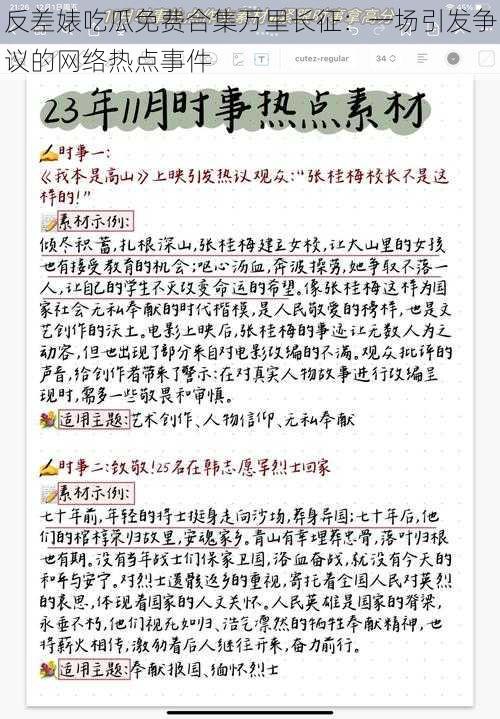 反差婊吃瓜免费合集万里长征：一场引发争
议的网络热点事件
21:26 12月1日周五
45%
cutez-regular
34
23年11月时事热点素材
✍时事一:
《我本是高山》上映引发热议 观众:“张桂梅校长不是这
样的!”
📝素材示例:
倾尽积蓄,扎根深山,张桂梅建立女校,让大山里的女孩
也有接受教育的机会;呕心沥血,奔波操劳,她争取不落一
人,让自己的学生不灭改变命运的希望。像张桂梅这样为国
家社会无私奉献的时代楷模,是人民敬爱的榜样,也是文
艺创作的沃土。电影上映后,张桂梅的事迹让无数人为之
动容,但也出现了部分来自对电影改编的不满。观众批评的
声音,给创作者带来了警示:在对真实人物故事进行改编呈
现时,需多一些敬畏和审慎。
💐适用主题:艺术创作、人物信仰、无私奉献
✍时事二:致敬!25名在韩志愿军烈士回家
📝素材示例:
七十年前,年轻的将士挺身走向沙场,葬身异国;七十年后,他
们的棺椁荣归故里,安魂家乡。青山有幸埋葬忠骨,落叶归根
也有期。没有当年战士们保家卫国,浴血奋战,就没有今天的
和平与安宁。对烈士遗骸返乡的重视,寄托着全国人民对英烈
的哀思,体现着国家的人文关怀。人民英雄是国家的脊梁,
永垂不朽,他们视死如归、浩气凛然的牺牲奉献精神,也
将薪火相传,激励着后人继往开来,奋力前行。
💐适用主题:奉献报国、缅怀烈士